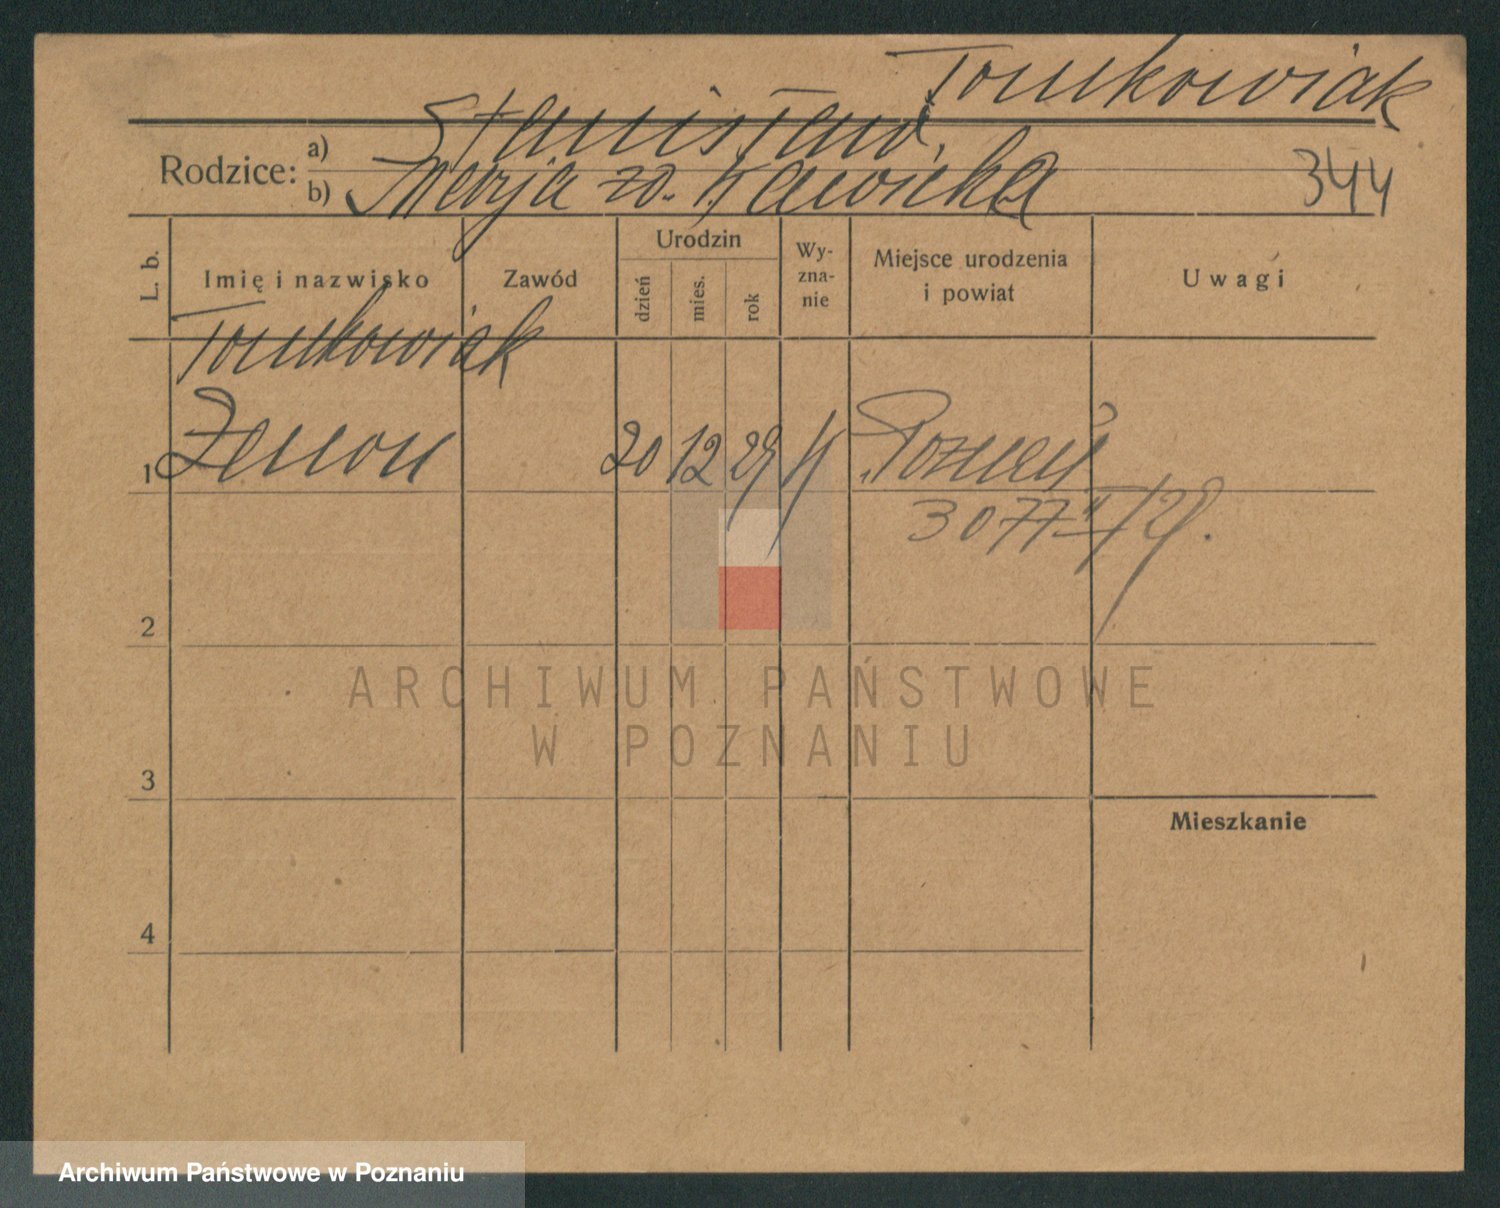 Tomkowiak
Rodzice: a) Stanisław,
b) Marja zd. Kawicka
344
L. b. Imię i nazwisko Zawód Urodzin dzień mies. rok Wy-zna-nie Miejsce urodzenia i powiat Uwagi
Tomkowiak
1 Zenon 20 12 29 k Poznań
3077 /29.
2
ARCHIWUM PAŃSTWOWE
W POZNANIU
3
Mieszkanie
4
Archiwum Państwowe w Poznaniu